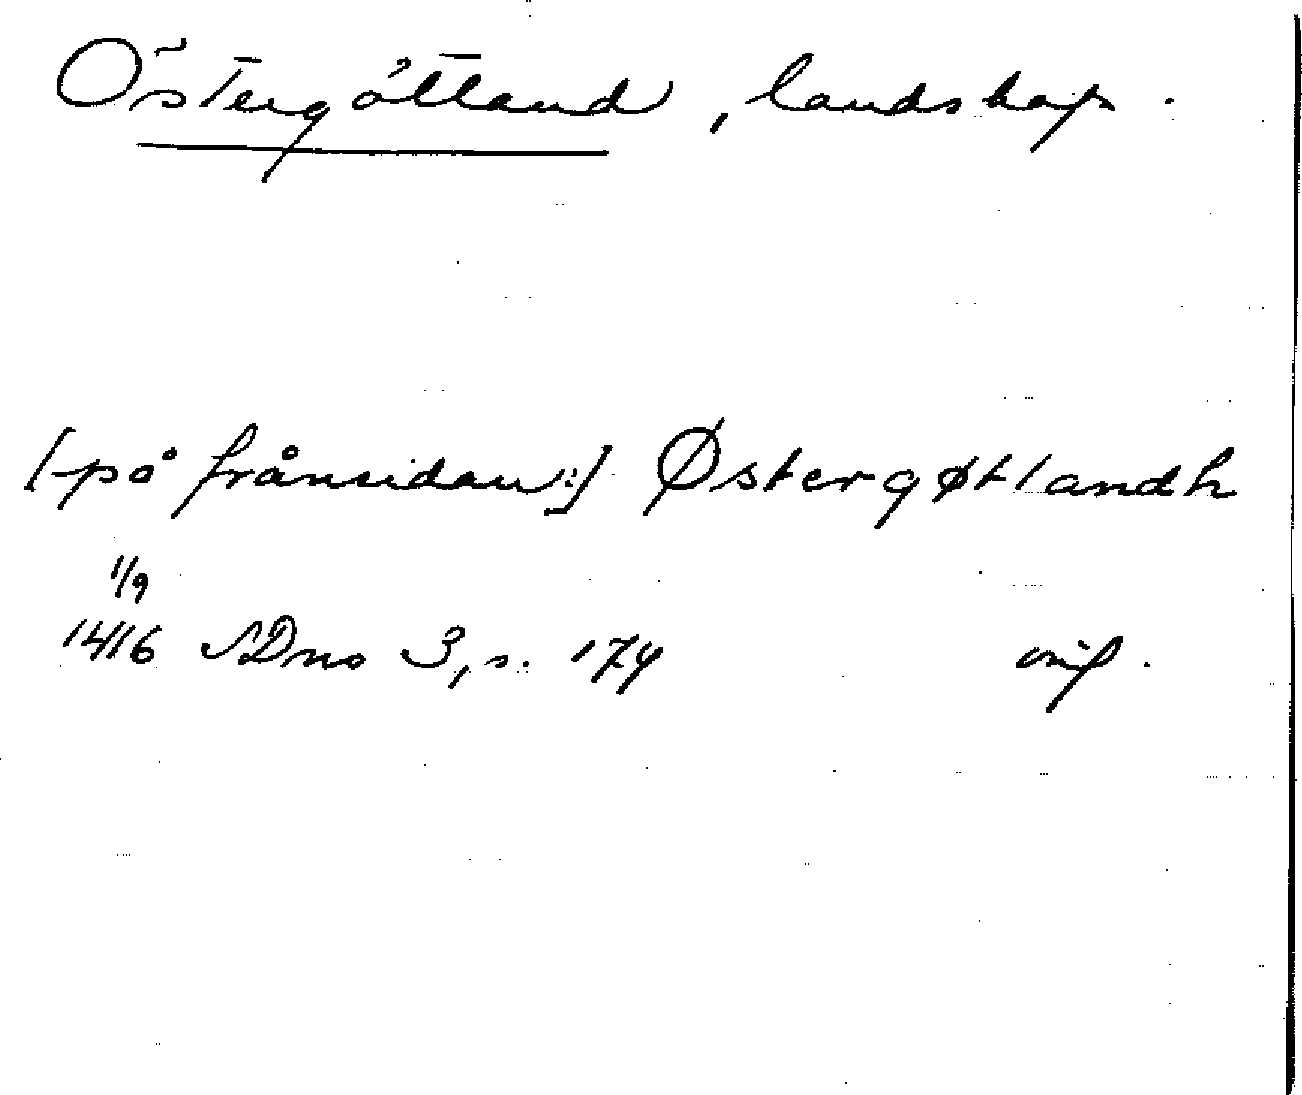 Östergötland, landskap.
[på frånsidan:] Østergøtlandh
1/9
1416 SDns 3, s. 174 orig.